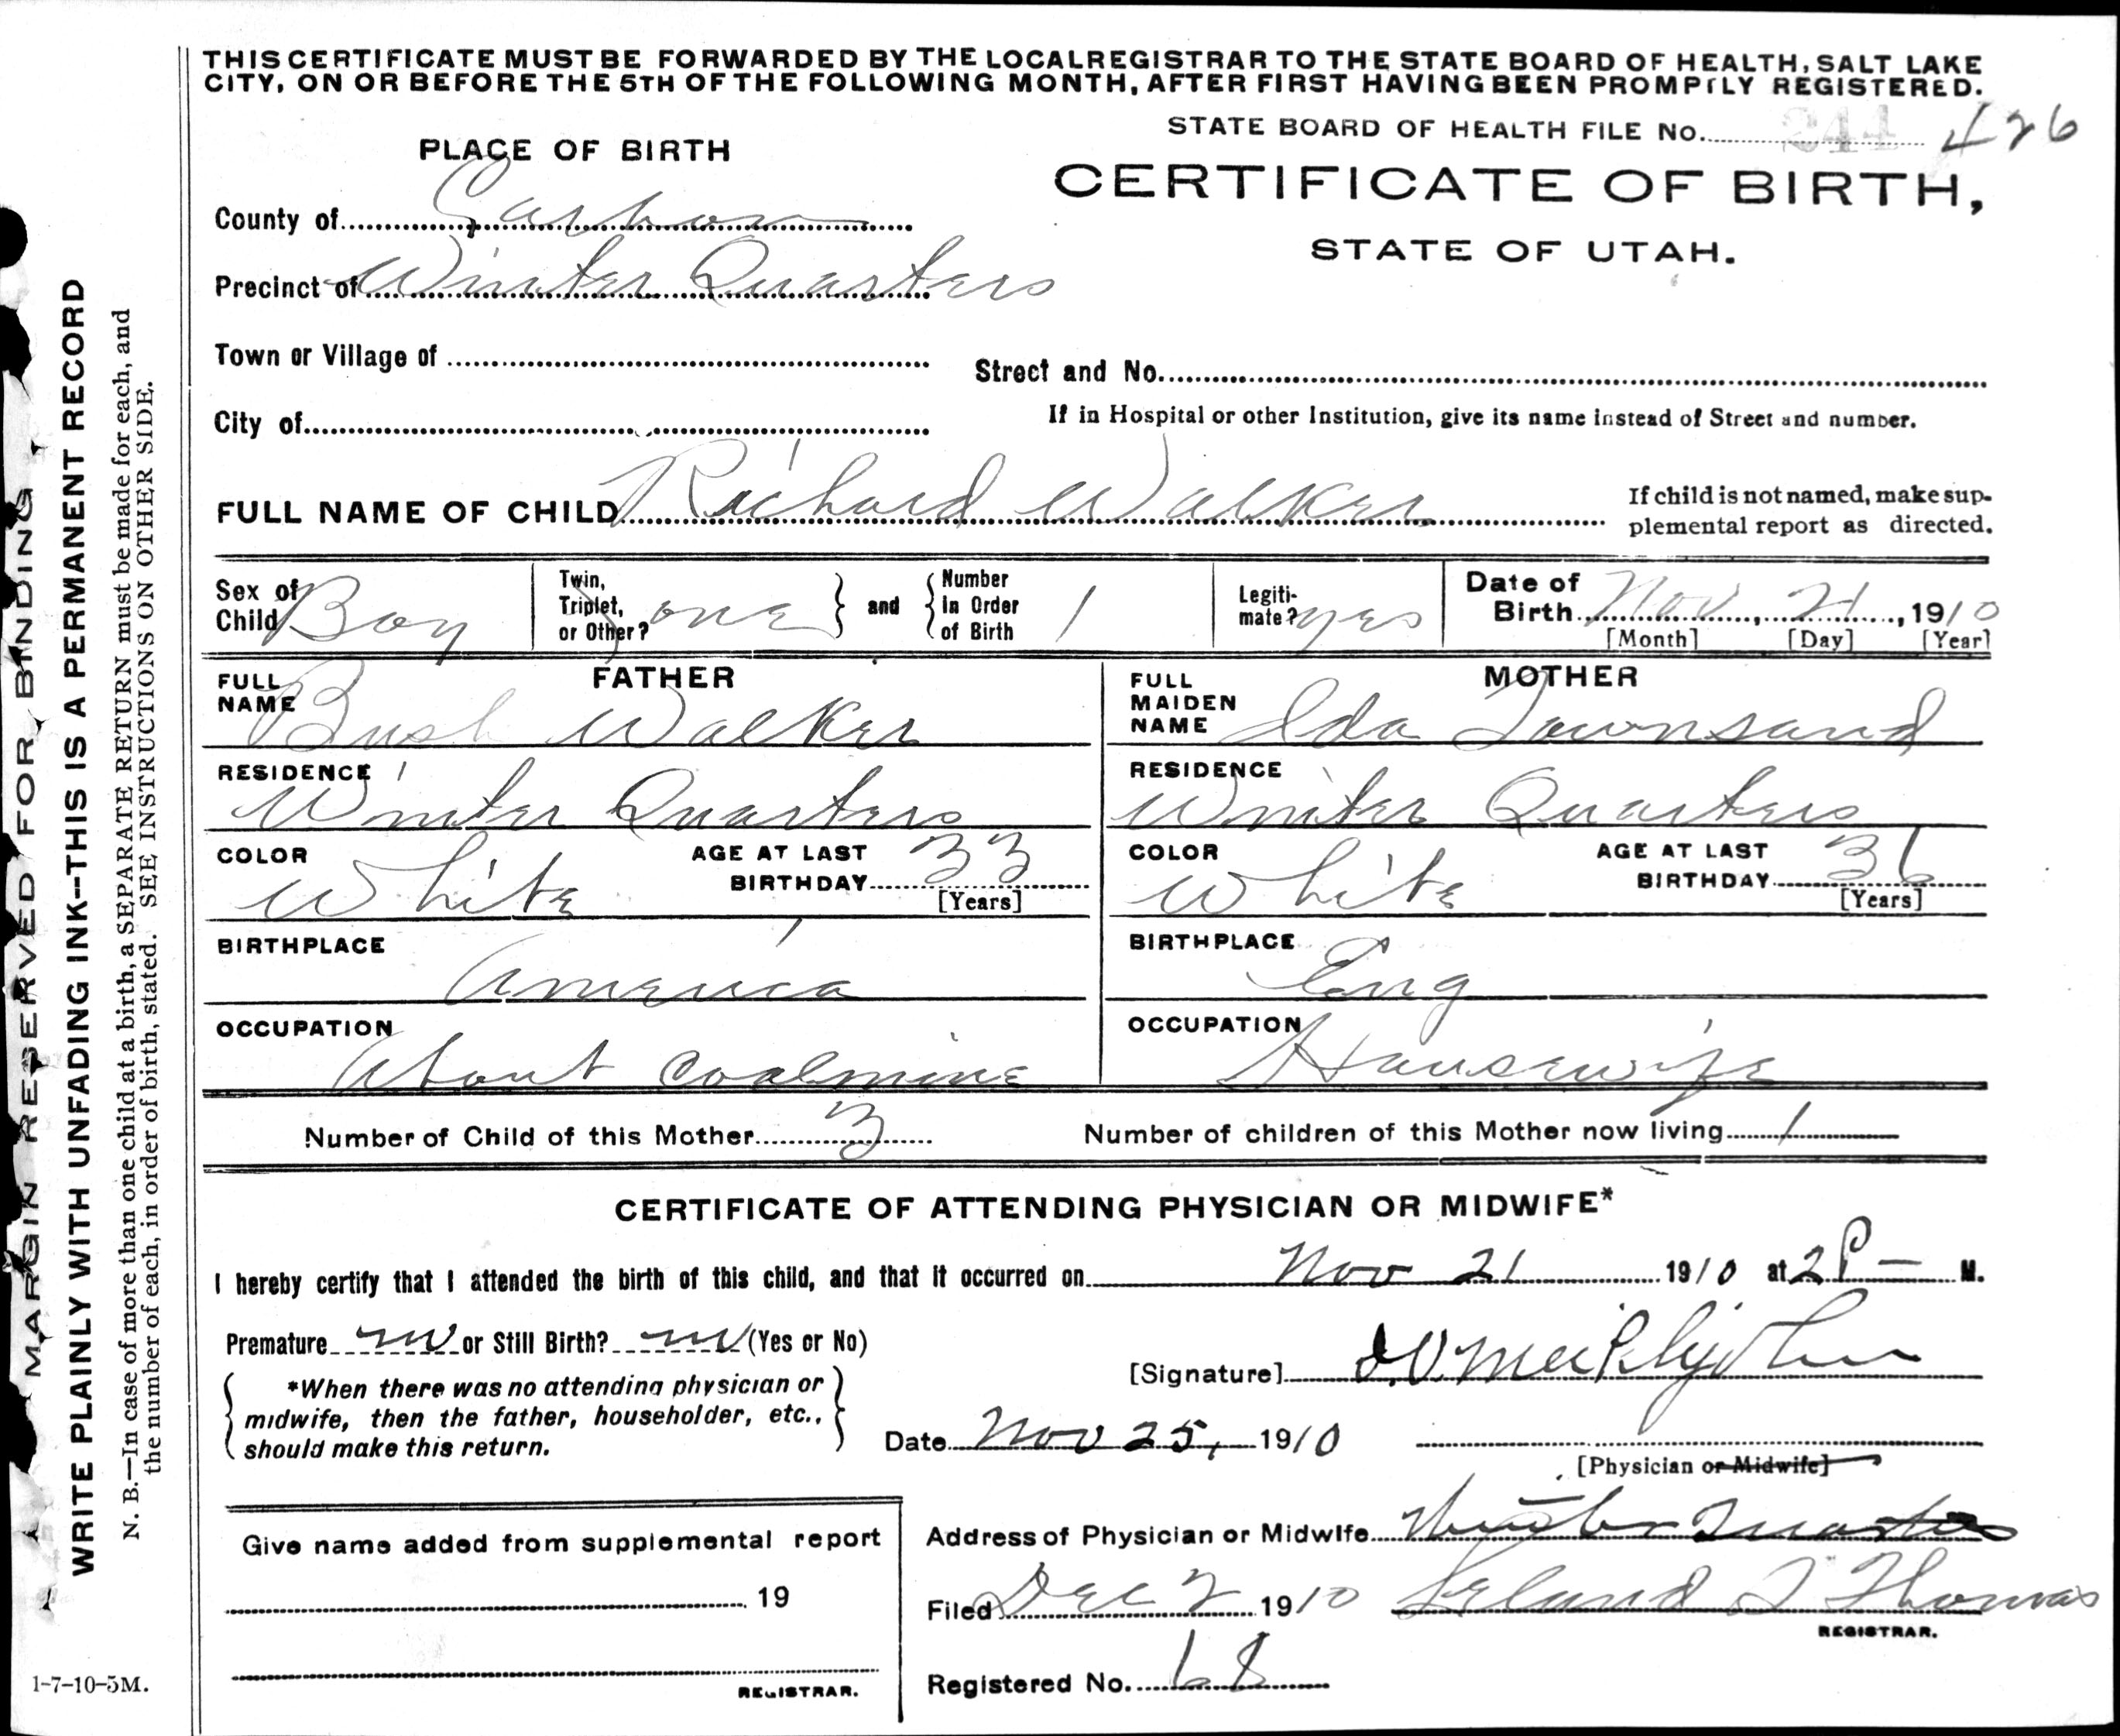 THIS CERTIFICATE MUST BE FORWARDED BY THE LOCAL REGISTRAR TO THE STATE BOARD OF HEALTH, SALT LAKE
CITY, ON OR BEFORE THE 5TH OF THE FOLLOWING MONTH, AFTER FIRST HAVING BEEN PROMPTLY REGISTERED.
STATE BOARD OF HEALTH FILE No. 241 426
PLACE OF BIRTH
CERTIFICATE OF BIRTH,
STATE OF UTAH.
County of Carbon
Precinct of Winter Quarters
Town or Village of
Street and No.
City of
If in Hospital or other Institution, give its name instead of Street and number.
FULL NAME OF CHILD Richard Walker
If child is not named, make sup-
plemental report as directed.
Sex of Child Boy
Twin, Triplet, or Other? one and Number in Order of Birth 1
Legiti-
mate? yes
Date of Birth Nov, 21, 1910
[Month] [Day] [Year]
FATHER
FULL NAME Bush Walker
RESIDENCE
Winter Quarters
COLOR White AGE AT LAST BIRTHDAY 33
[Years]
BIRTHPLACE
America
OCCUPATION
About coalmine
MOTHER
FULL MAIDEN NAME Ida Townsand
RESIDENCE
Winter Quarters
COLOR White AGE AT LAST BIRTHDAY 36
[Years]
BIRTHPLACE
Eng
OCCUPATION
Housewife
Number of Child of this Mother 3 Number of children of this Mother now living 1
CERTIFICATE OF ATTENDING PHYSICIAN OR MIDWIFE*
I hereby certify that I attended the birth of this child, and that it occurred on Nov 21 1910 at 2 P — M.
Premature no or Still Birth? no (Yes or No)
*When there was no attending physician or
midwife, then the father, householder, etc.,
should make this return.
[Signature]
Date Nov 25, 1910
[Physician or Midwife]
Give name added from supplemental report
19
REGISTRAR.
Address of Physician or Midwife Winter Quarters
Filed Dec 2 1910 Leland T Thomas
REGISTRAR.
Registered No. 68
MARGIN RESERVED FOR BINDING
WRITE PLAINLY WITH UNFADING INK--THIS IS A PERMANENT RECORD
N. B.—In case of more than one child at a birth, a SEPARATE RETURN must be made for each, and
the number of each, in order of birth, stated. SEE INSTRUCTIONS ON OTHER SIDE.
1-7-10-5M.